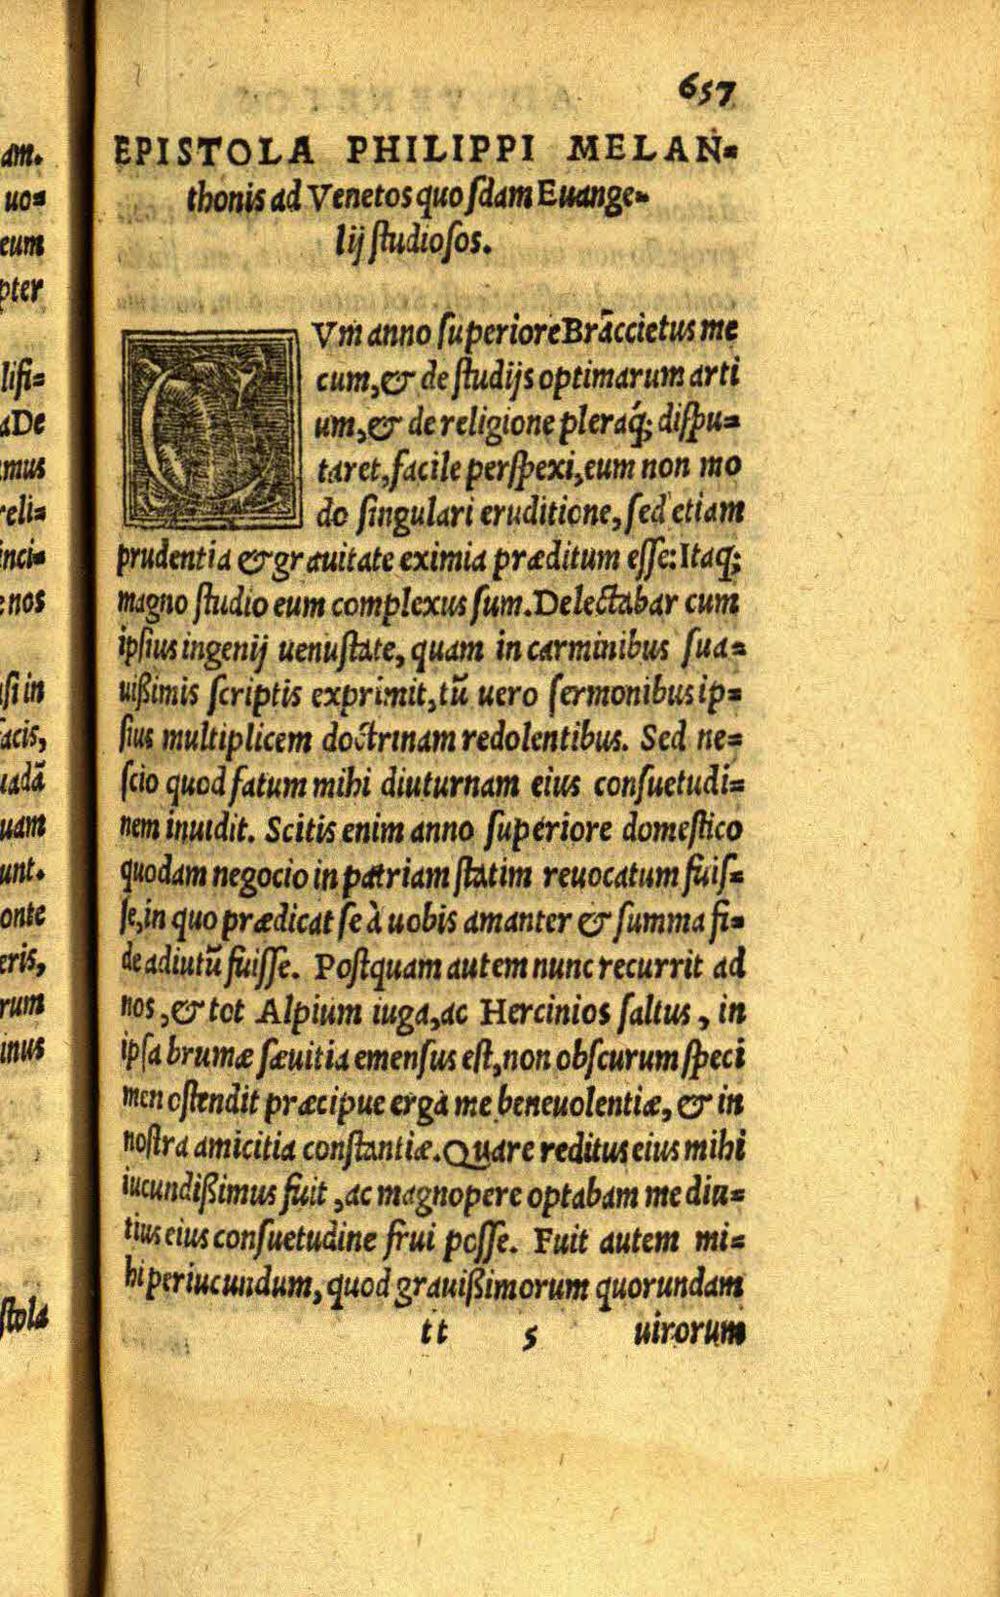 am.
uo=
eum
pter
lifi=
aDe
mus
reli=
inci=
nos
si in
facis,
uadā
uam
unt.
onte
eris,
rum
inus
stola
657
EPISTOLA PHILIPPI MELAN=
thonis ad Venetos quosdam Euange=
lij studiosos.
CVm anno superiore Brāccietus me
cum, & de studijs optimarum arti
um, & de religione pleraq́; dispu=
taret, facile perspexi, eum non mo
do singulari eruditione, sed etiam
prudentia & grauitate eximia præditum esse: Itaq;
magno studio eum complexus sum. Delectabar cum
ipsius ingenij uenustate, quam in carminibus sua=
uißimis scriptis exprimit, tū uero sermonibus ip=
sius multiplicem doctrinam redolentibus. Sed ne=
scio quod fatum mihi diuturnam eius consuetudi=
nem inuidit. Scitis enim anno superiore domestico
quodam negocio in patriam statim reuocatum fuis=
se, in quo prædicat se à uobis amanter & summa fi=
de adiutū fuisse. Postquam autem nunc recurrit ad
nos, & tot Alpium iuga, ac Hercinios saltus, in
ipsa brumæ sæuitia emensus est, non obscurum speci
men ostendit præcipue erga me beneuolentiæ, & in
nostra amicitia constantiæ. Quare reditus eius mihi
iucundißimus fuit, ac magnopere optabam me diu=
tius eius consuetudine frui posse. Fuit autem mi=
hi periucundum, quod grauißimorum quorundam
tt 5 uirorum